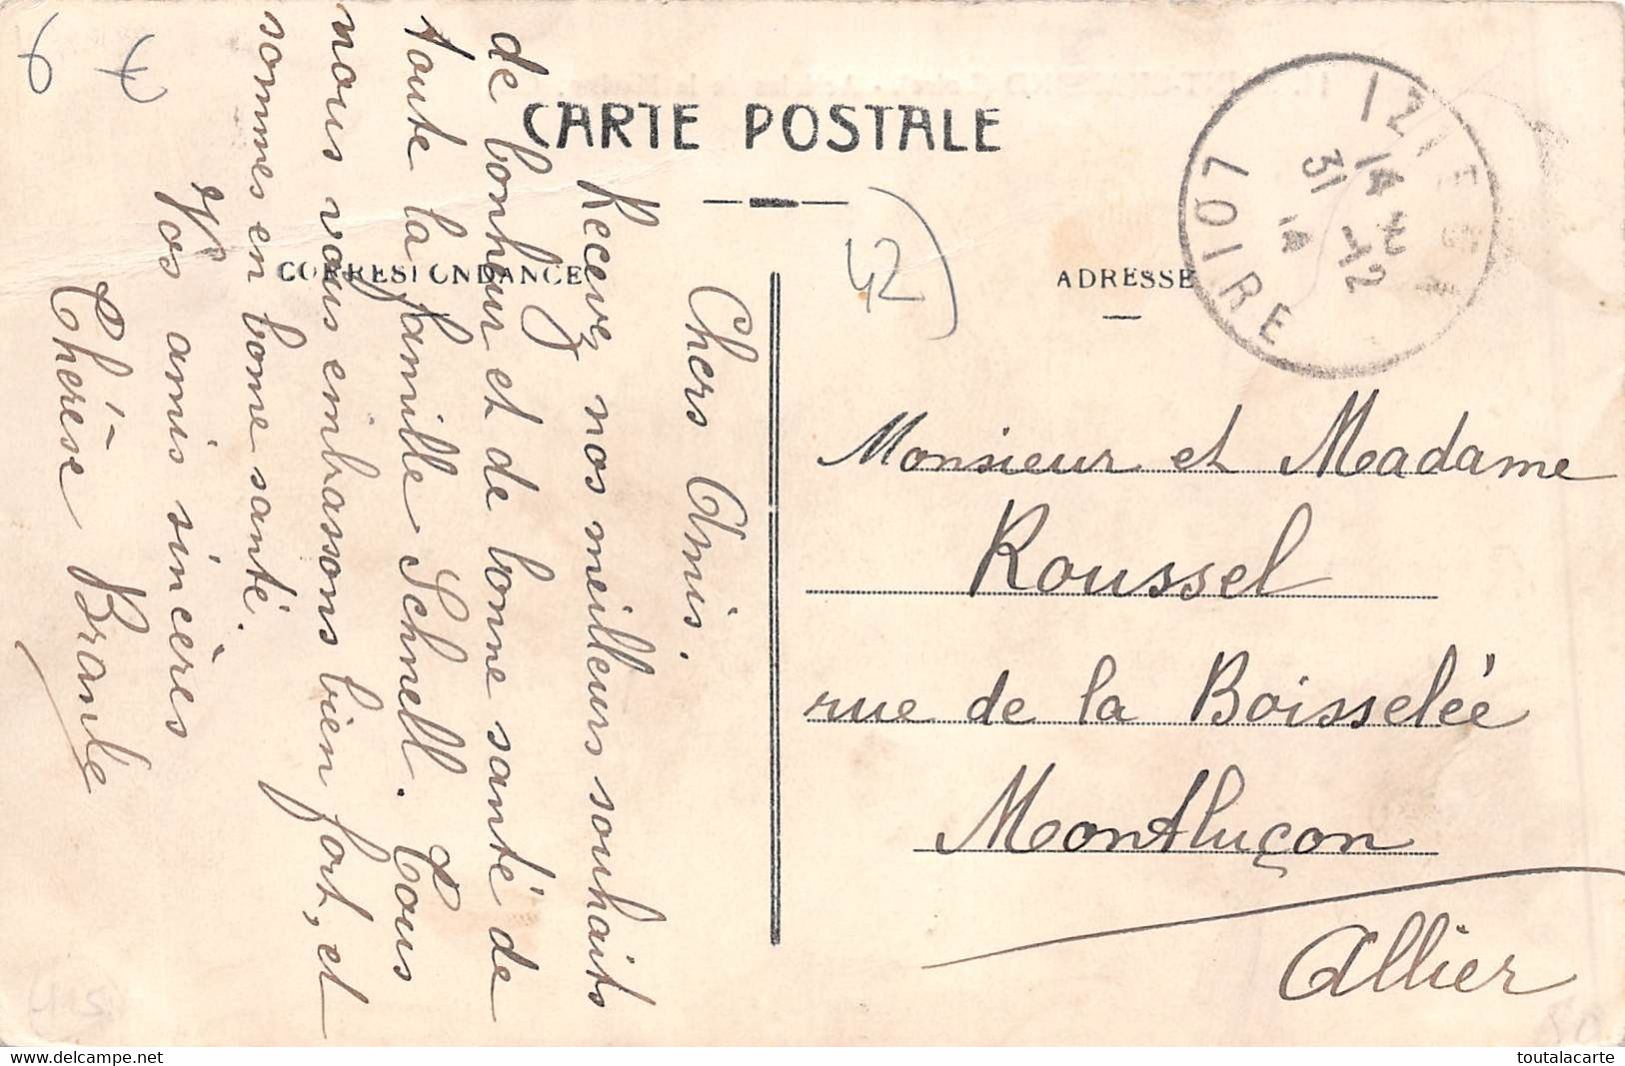 CARTE POSTALE
CORRESPONDANCE
ADRESSE
42
IZIEUX
14 H
31 -12
14
LOIRE
Chers Amis.
Recevez nos meilleurs souhaits
de bonheur et de bonne santé de
toute la famille Schnell. Tous
nous vous embrassons bien fort, et
sommes en bonne santé.
Vos amis sincères
Thérèse Branle
Monsieur et Madame
Roussel
rue de la Boisselée
Montluçon
Allier
115
50
Delcampe.net
toutalacarte